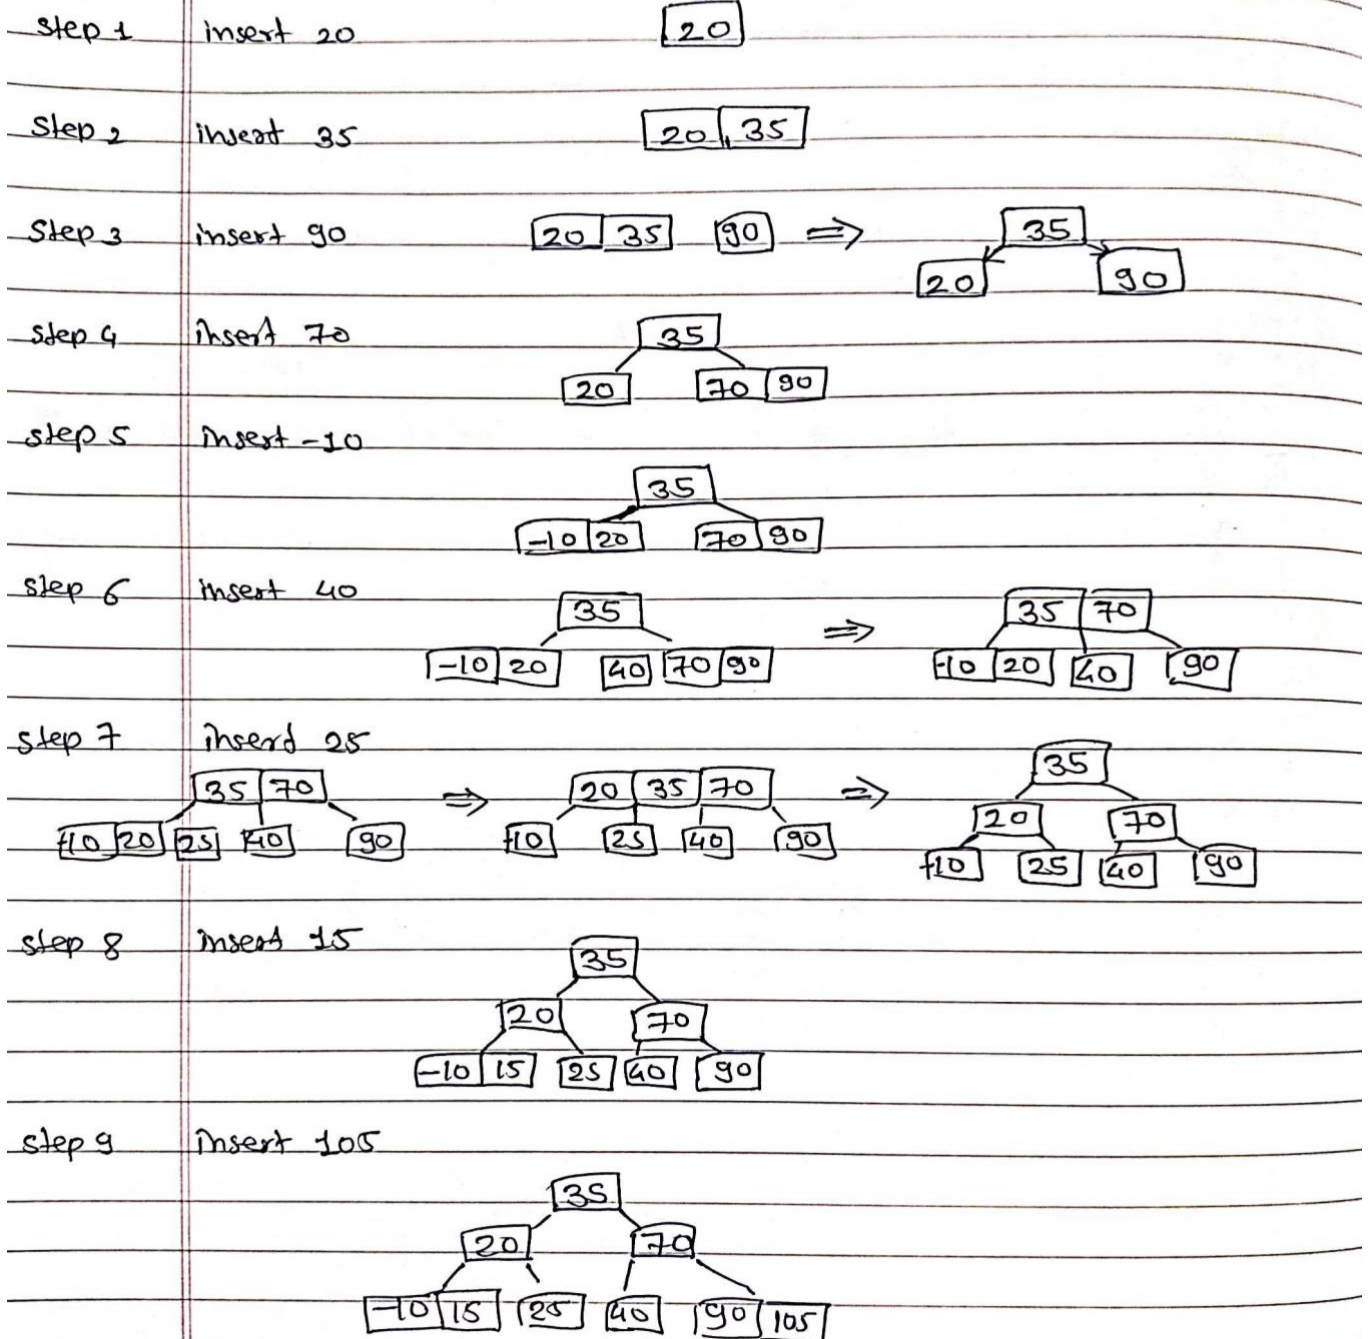 Step 1 insert 20 20
Step 2 insert 35 20, 35
Step 3 insert 90 20 35 90 ⇒ 35
20 90
step 4 insert 70 35
20 70 90
step 5 insert -10
35
-10 20 70 90
step 6 insert 40 35 ⇒ 35 70
-10 20 40 70 90 -10 20 40 90
step 7 insert 25
35
35 70 ⇒ 20 35 70 ⇒ 20 70
-10 20 25 40 90 -10 25 40 90 -10 25 40 90
step 8 insert 15
35
20 70
-10 15 25 40 90
step 9 insert 105
35
20 70
-10 15 25 40 90 105